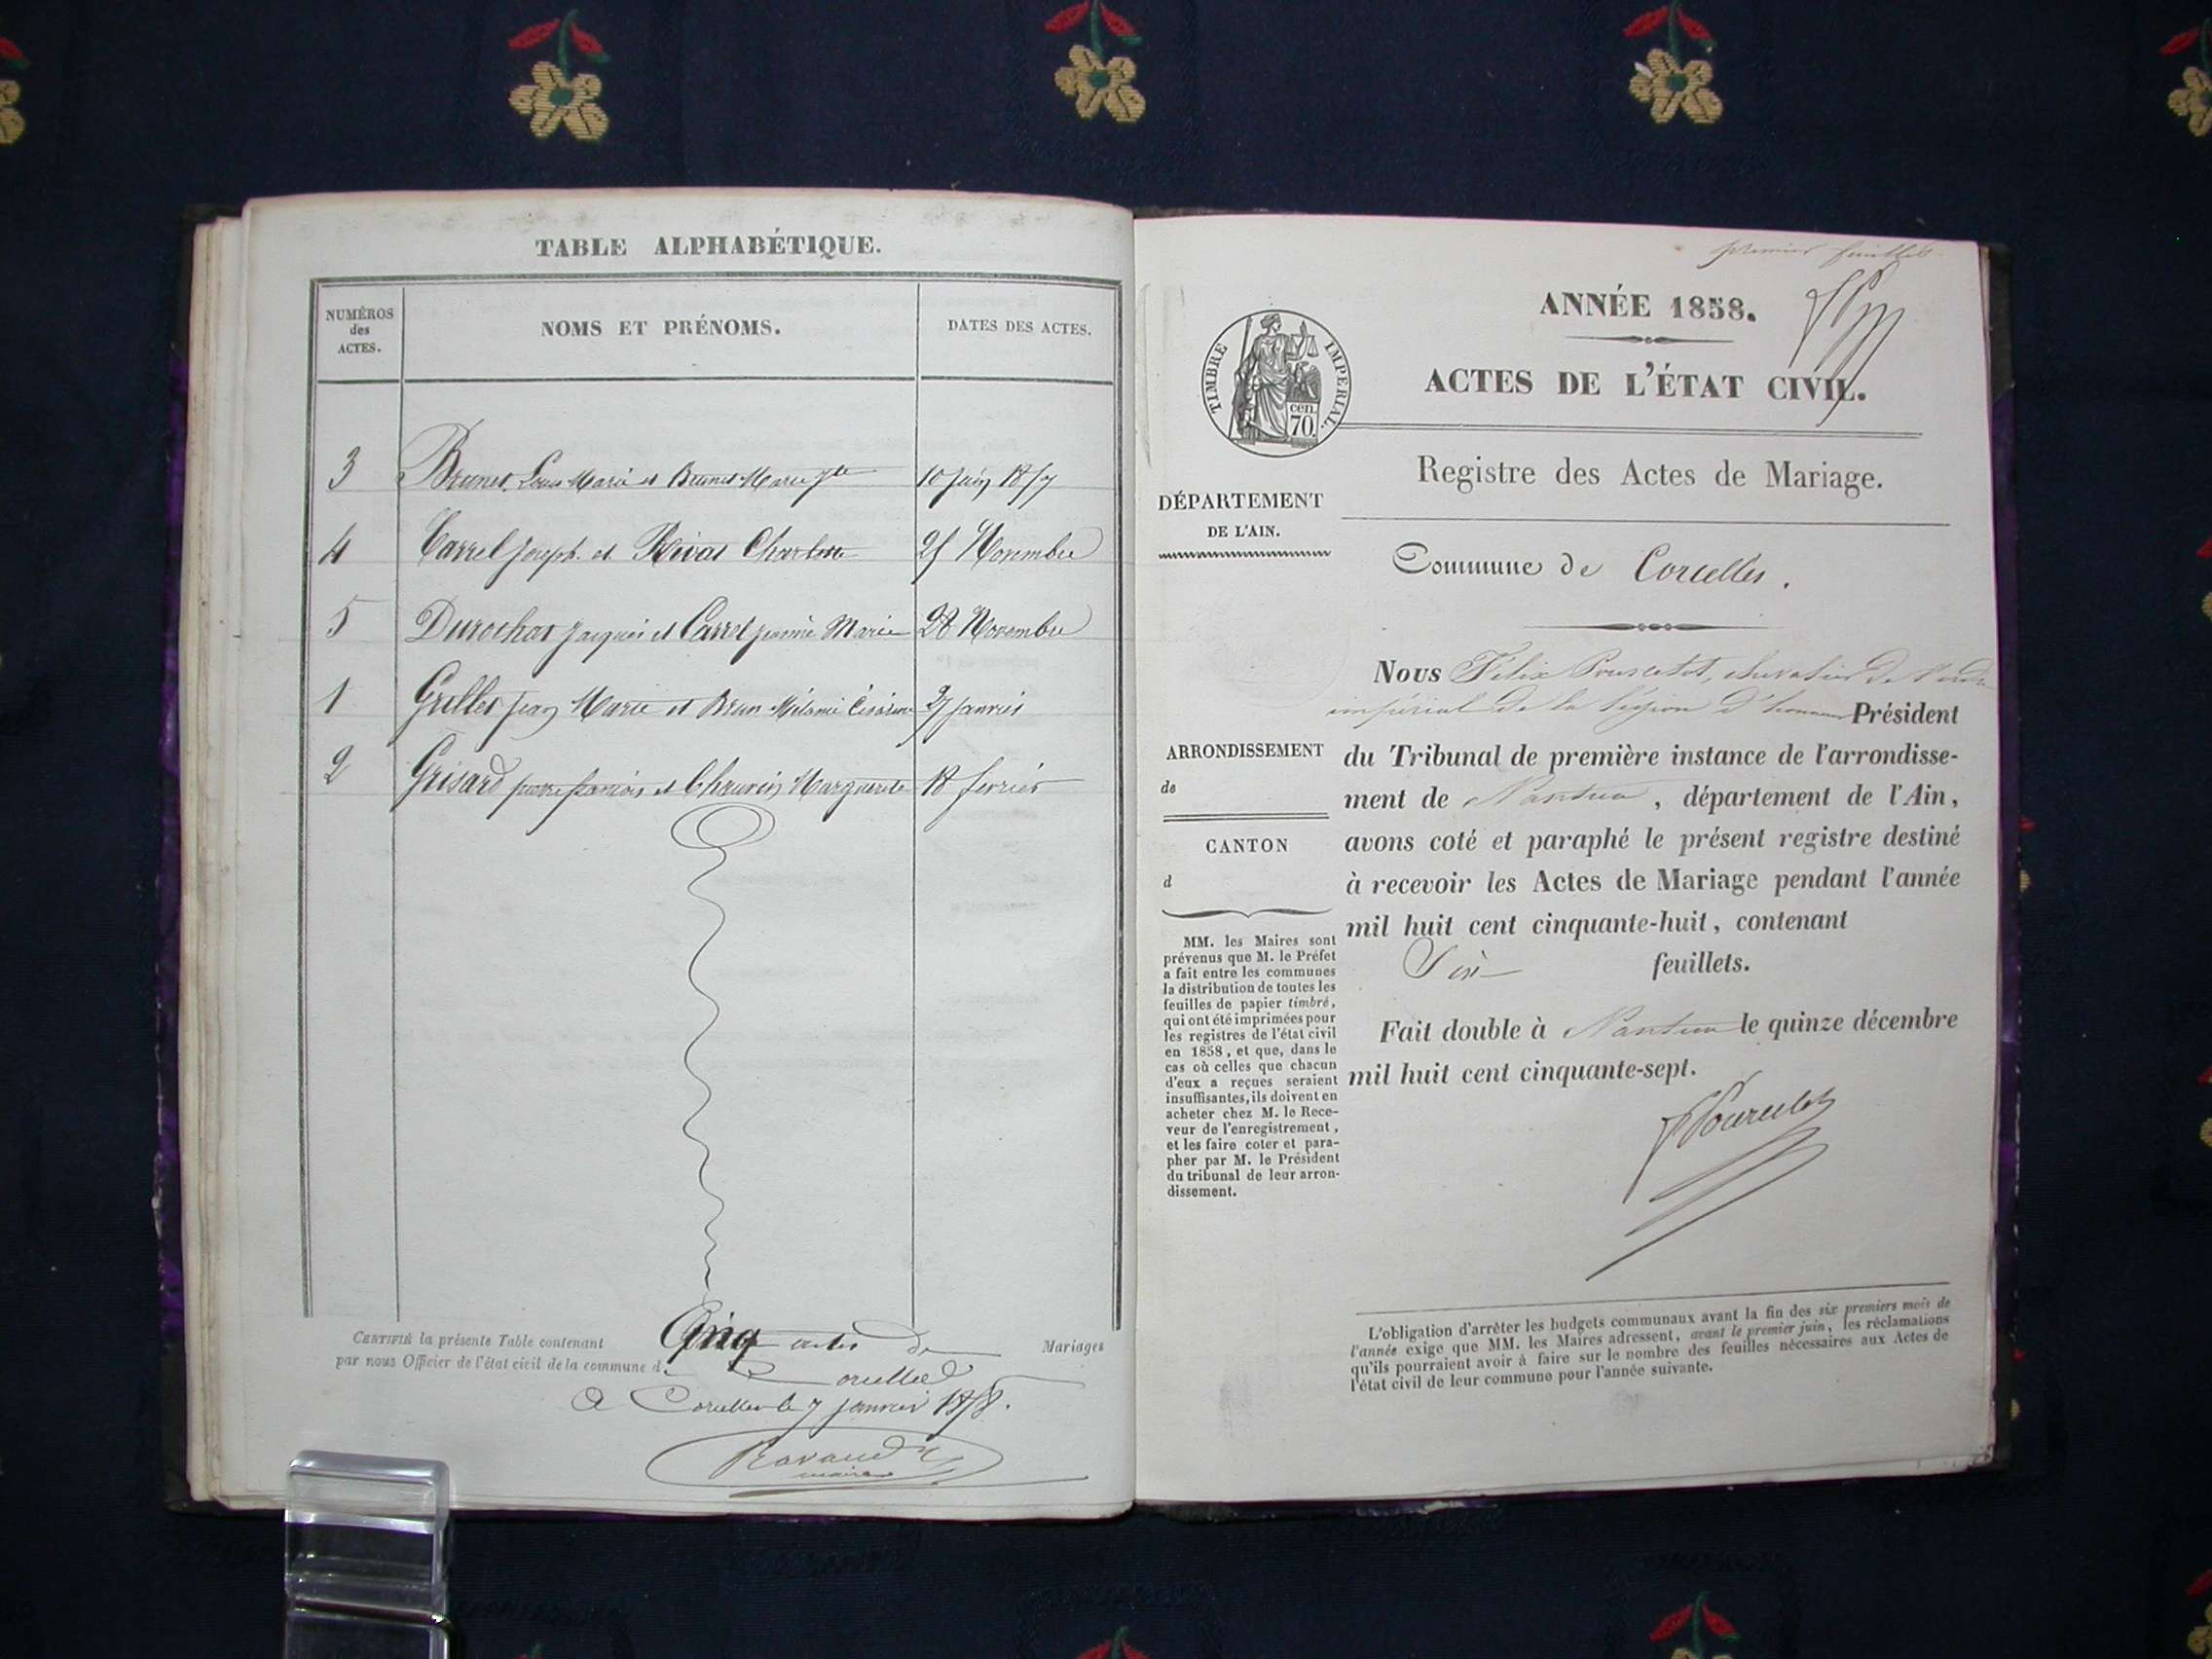 TABLE ALPHABÉTIQUE.
NUMÉROS des ACTES.
NOMS ET PRÉNOMS.
DATES DES ACTES.
3 Brunet Louis Marie et Brunet Marie 10 juin 1857
4 Carrel Joseph et Rivat Charlotte 25 Novembre
5 Durochat Jacques et Carrel jeanne Marie 28 Novembre
1 Grillet jean Marie et Brun Mélanie Césarine 27 janvier
2 Grisard pierre françois et Chauvin Marguerite 18 fevrier
CERTIFIÉ la présente Table contenant Cinq actes de Mariages
par nous Officier de l'état civil de la commune d. Corcelles
A Corcelles le 7 janvier 1858.
Ravaud
maire
premier feuillet
ANNÉE 1858.
ACTES DE L'ÉTAT CIVIL.
TIMBRE IMPERIAL.
cen.
70.
Registre des Actes de Mariage.
DÉPARTEMENT
DE L'AIN.
Commune de Corcelles.
Nous Félix Pourcelot, chevalier de l'ordre
impérial de la légion d'honneur Président
ARRONDISSEMENT
de
CANTON
d
du Tribunal de première instance de l'arrondisse-
ment de Nantua, département de l'Ain,
avons coté et paraphé le présent registre destiné
à recevoir les Actes de Mariage pendant l'année
mil huit cent cinquante-huit, contenant
Six feuillets.
Fait double à Nantua le quinze décembre
mil huit cent cinquante-sept.
Pourcelot
MM. les Maires sont
prévenus que M. le Préfet
a fait entre les communes
la distribution de toutes les
feuilles de papier timbré,
qui ont été imprimées pour
les registres de l'état civil
en 1858, et que, dans le
cas où celles que chacun
d'eux a reçues seraient
insuffisantes, ils doivent en
acheter chez M. le Rece-
veur de l'enregistrement,
et les faire coter et para-
pher par M. le Président
du tribunal de leur arron-
dissement.
L'obligation d'arrêter les budgets communaux avant la fin des six premiers mois de
l'année exige que MM. les Maires adressent, avant le premier juin, les réclamations
qu'ils pourraient avoir à faire sur le nombre des feuilles nécessaires aux Actes de
l'état civil de leur commune pour l'année suivante.